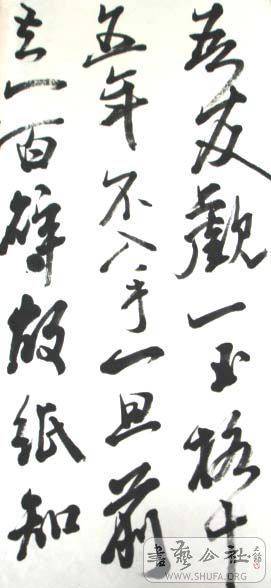 吾友觀一玉格十
五年不入手一旦前
一百碎故紙知
書藝公社
WWW.SHUFA.ORG